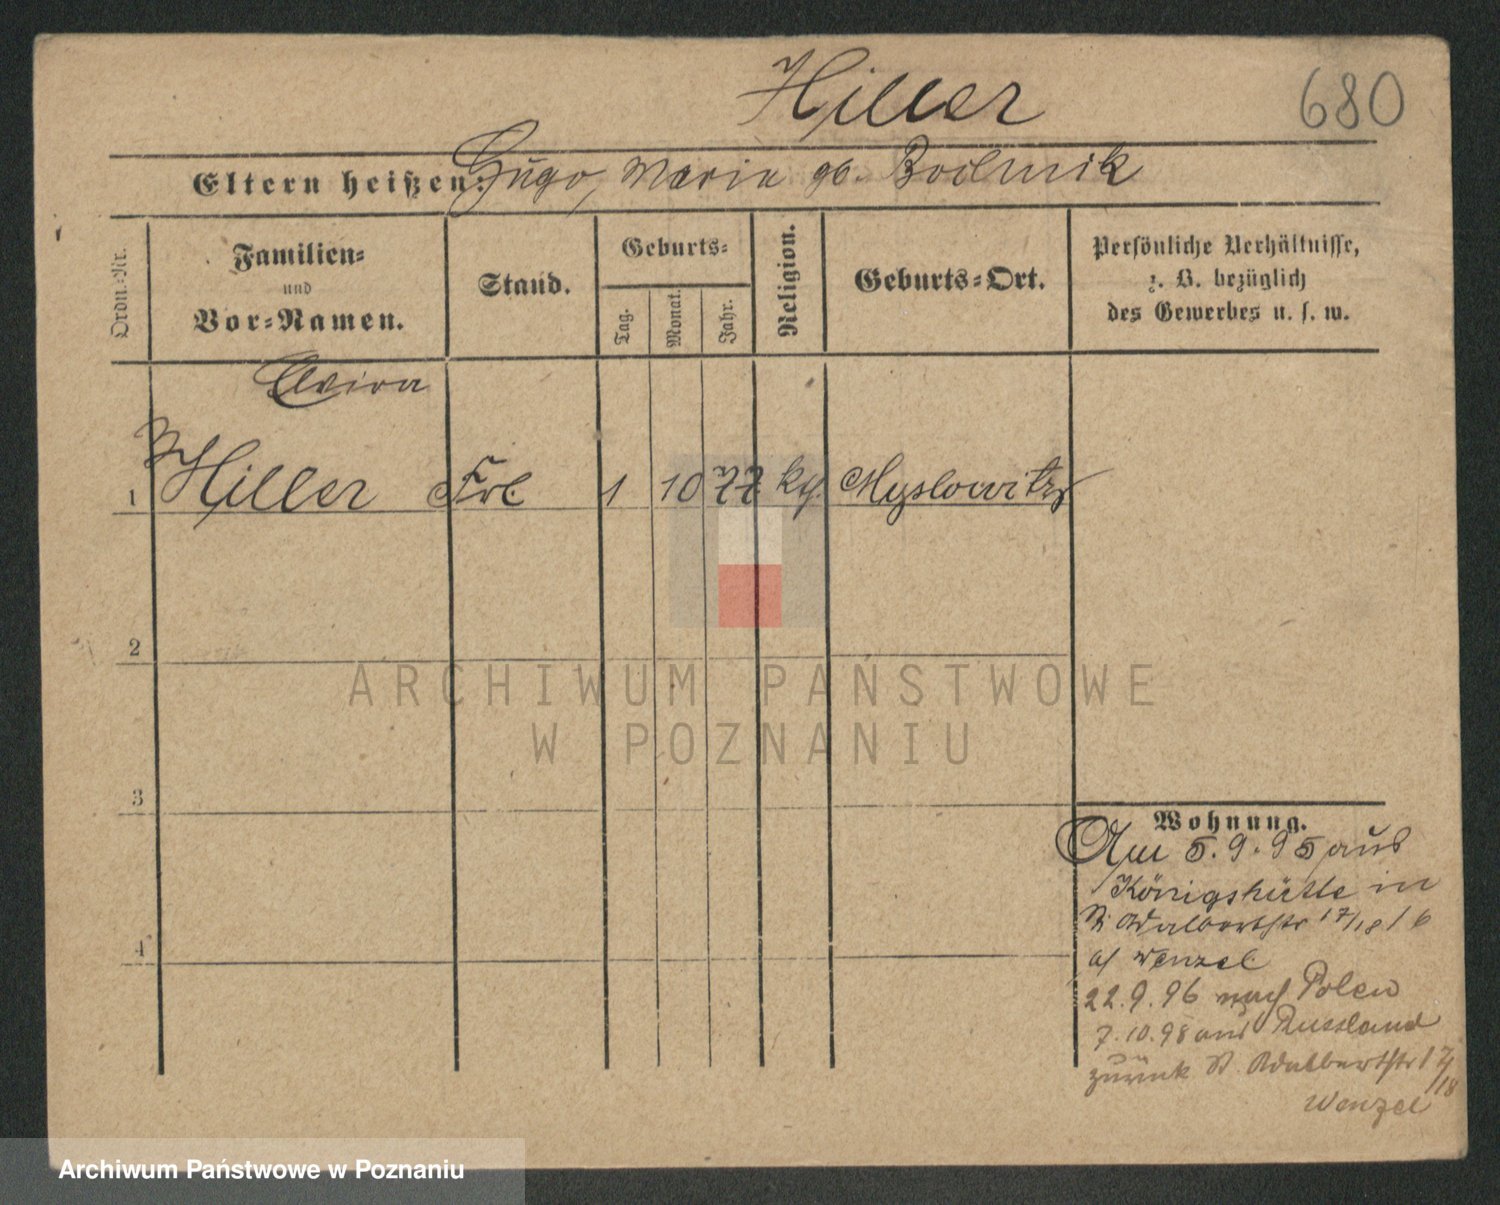 Hiller
680
Eltern heißen: Hugo, Maria gb.
Ordn.-Nr.
Familien-
und
Vor-Namen.
Stand.
Geburts-
Tag.
Monat.
Jahr.
Religion.
Geburts-Ort.
Persönliche Verhältnisse,
z. B. bezüglich
des Gewerbes u. s. w.
Elvira
1 Hiller Frl. 1 10 77 Myslowitz
2
3
4
Wohnung.
Am 5.9.95 aus
Königshütte in
St. Adalbertstr 17/18 I 6
a/ Wenzel
22.9.96 nach Polen
7.10.98 aus Russland
zurück St. Adalbertstr 17/18
Wenzel
ARCHIWUM PAŃSTWOWE
W POZNANIU
Archiwum Państwowe w Poznaniu